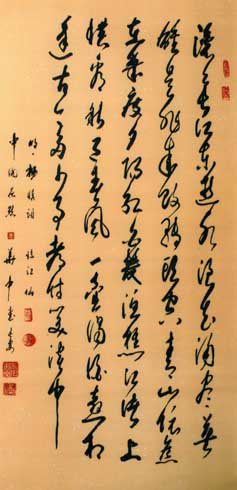 滾〻長江東逝水浪花淘盡英
雄是非成敗轉頭空青山依舊
在幾度夕陽紅白髮漁樵江渚上
慣看秋月春風一壺濁酒喜相
逢古今多少事都付笑談中
明楊慎詞臨江仙